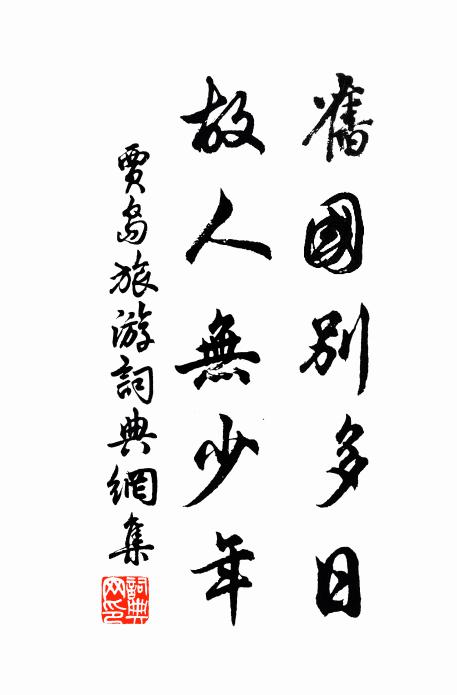 舊國別多日
故人無少年
賈島旅游詞典網集
詞典網印